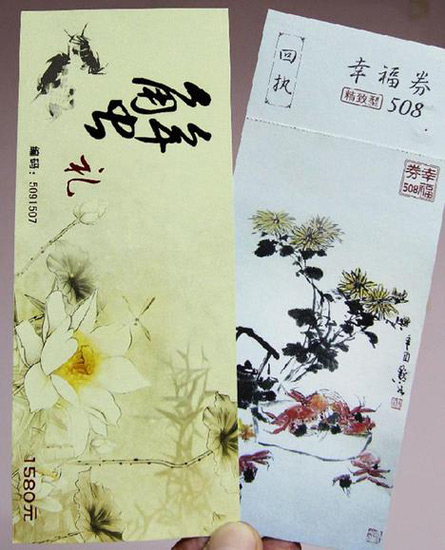 蟹
礼
编码：5091507
1580元
回执
幸福券
精致型 508
幸福
券
508